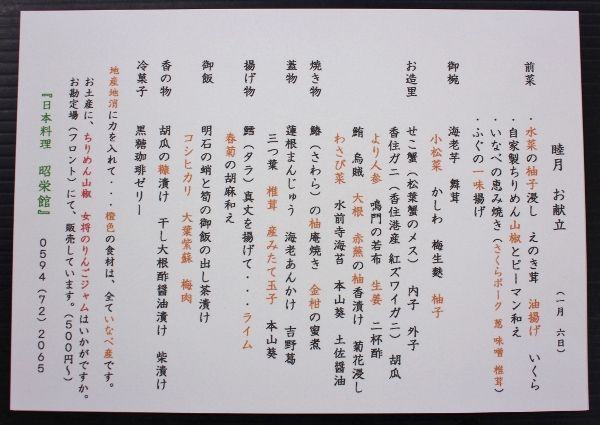 睦月　お献立
（一月　六日）
前菜　・水菜の柚子浸し　えのき茸　油揚げ　いくら
・自家製ちりめん山椒とピーマン和え
・いなべの恵み焼き（さくらポーク　葱　味噌　椎茸）
・ふぐの一味揚げ
御椀　海老芋　舞茸
小松菜　かしわ　梅生麩　柚子
お造里　せこ蟹（松葉蟹のメス）　内子　外子
香住ガニ（香住港産　紅ズワイガニ）　胡瓜
より人参　鳴門の若布　生姜　二杯酢
鮪　烏賊　大根　赤蕪の柚香漬け　菊花浸し
わさび菜　水前寺海苔　本山葵　土佐醤油
焼き物　鰆（さわら）の柚庵焼き　金柑の蜜煮
蓋物　蓮根まんじゅう　海老あんかけ　吉野葛
三つ葉　椎茸　産みたて玉子　本山葵
揚げ物　鱈（タラ）真丈を揚げて・・・ライム
春菊の胡麻和え
御飯　明石の蛸と筍の御飯の出し茶漬け
コシヒカリ　大葉紫蘇　梅肉
香の物　胡瓜の糠漬け　干し大根酢醤油漬け　柴漬け
冷菓子　黒糖珈琲ゼリー
地産地消に力を入れて・・・橙色の食材は、全ていなべ産です。
お土産に、ちりめん山椒　女将のりんごジャムはいかがですか。
お勘定場（フロント）にて、販売しています。（５００円～）
『日本料理　昭栄館』　０５９４（７２）２０６５